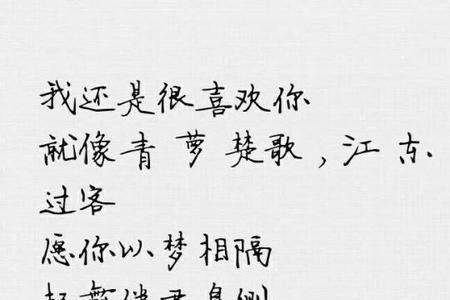 我还是很喜欢你
就像青 萝 楚歌，江东
过客
愿你以梦相隔